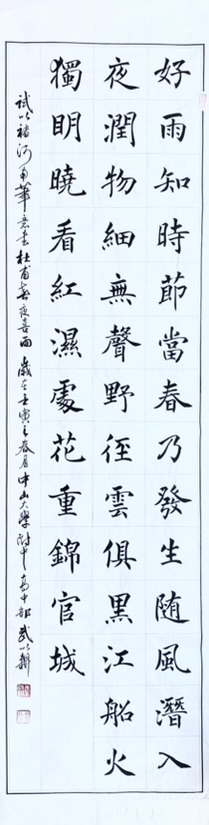 好雨知時節當春乃發生随風潛入
夜潤物細無聲野徑雲俱黑江船火
獨明曉看紅濕處花重錦官城
試以褚河南筆意書杜甫春夜喜雨歲在壬寅之春月中山大學附中高中部武